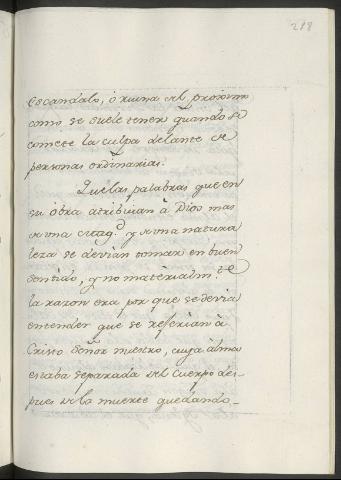 218
escandalo, ò ruina del proximo
como se suele tener quando se
comete la culpa delante de
personas ordinarias.
Que las palabras que en
su obra atribuian à Dios mas
de una y de una natura
leza se devian tomar en buen
sentido, y no materialm.te
la razon era por que se devia
entender que se referian à
Cristo Señor nuestro, cuya alma
estaba separada del cuerpo des-
pues de la muerte quedando-